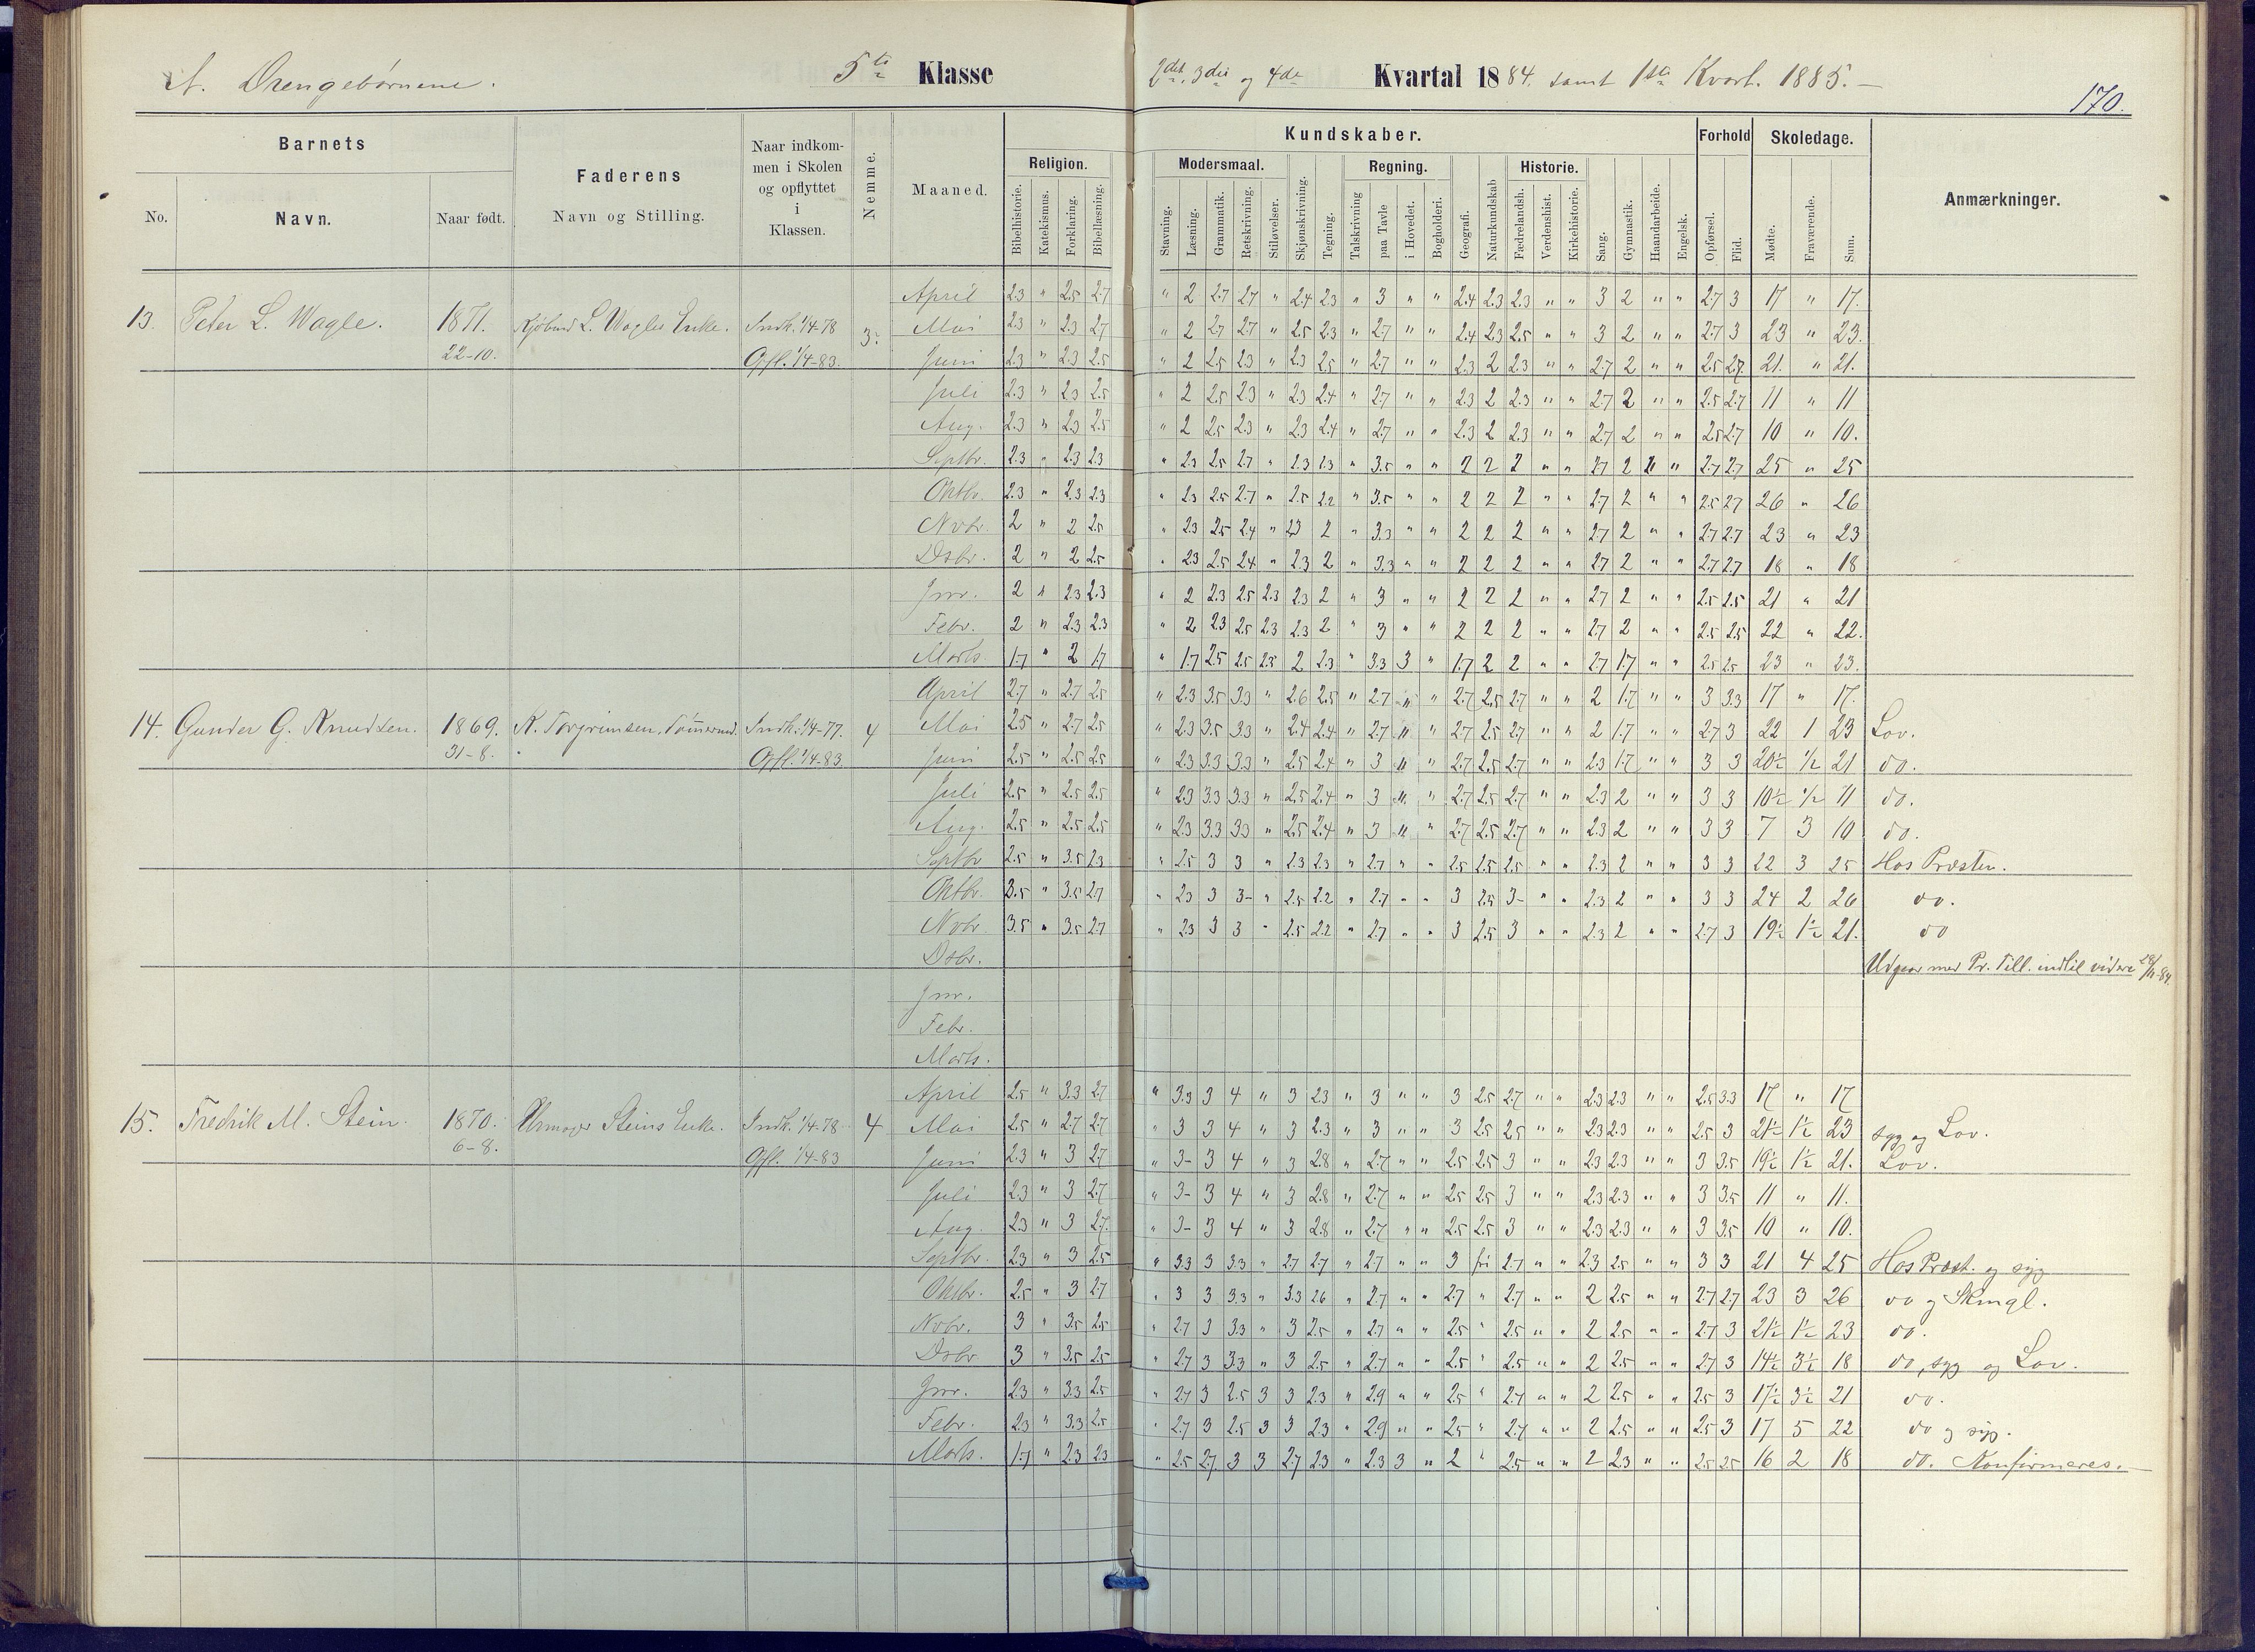 A. Drengebørnene. 5te Klasse 2det, 3die og 4de Kvartal 1884. samt 1ste Kvart. 1885.
170.
Barnets
No. Navn. Naar født.
Faderens Navn og Stilling.
Naar indkommen i Skolen og opflyttet i Klassen.
Nemme.
Maaned.
Kundskaber.
Religion.
Bibelhistorie. Katekismus. Forklaring. Bibellæsning.
Modersmaal.
Stavning. Læsning. Grammatik. Retskrivning. Stiløvelser.
Skjønskrivning. Tegning.
Regning.
Talskrivning paa Tavle i Hovedet. Bogholderi.
Geografi. Naturkundskab
Historie.
Fædrelandsh. Verdenshist. Kirkehistorie.
Sang. Gymnastik. Haandarbeide. Engelsk.
Forhold
Opførsel. Flid.
Skoledage.
Mødte. Fraværende. Sum.
Anmærkninger.
April 2.3 " 2.5 2.7 " 2 2.7 2.7 " 2.4 2.3 " 3 " " 2.4 2.3 2.3 " " 3 2 " " 2.7 3 17 " 17.
13. Peter L. Wagle. 1871. Kjøbmd L. Wagles Enke. Indk. 1/4-78 3. Mai 2.3 " 2.3 2.7 " 2 2.7 2.7 " 2.5 2.3 " 2.7 " " 2.4 2.3 2.5 " " 3 2 " " 2.7 3 23 " 23.
22-10. Opfl. 1/4-83. Juni 2.3 " 2.3 2.5 " 2 2.5 2.3 " 2.3 2.5 " 2.7 " " 2.3 2 2.3 " " 2.7 2 " " 2.5 2.7 21. " 21.
Juli 2.3 " 2.3 2.5 " 2 2.5 2.3 " 2.3 2.4 " 2.7 " " 2.3 2 2.3 " " 2.7 2 " " 2.5 2.7 11 " 11
Aug. 2.3 " 2.3 2.5 " 2 2.5 2.3 " 2.3 2.4 " 2.7 " " 2.3 2 2.3 " " 2.7 2 " " 2.5 2.7 10 " 10.
Septbr. 2.3 " 2.3 2.3 " 2.3 2.5 2.7 " 2.3 2.3 " 3.5 " " 2 2 2 " " 2.7 2 " " 2.7 2.7 25 " 25
Oktbr. 2.3 " 2.3 2.3 " 2.3 2.5 2.7 " 2.5 2.2 " 3.5 " " 2 2 2 " " 2.7 2 " " 2.5 2.7 26 " 26
Novbr. 2 " 2 2.5 " 2.3 2.5 2.4 " 2.3 2 " 3.3 " " 2 2 2 " " 2.7 2 " " 2.7 2.7 23 " 23
Dsbr. 2 " 2 2.5 " 2.3 2.5 2.4 " 2.3 2 " 3.3 " " 2 2 2 " " 2.7 2 " " 2.7 2.7 18 " 18
Jnr. 2 " 2.3 2.3 " 2 2.3 2.5 2.3 2.3 2 " 3 " " 2 2 2 " " 2.7 2 " " 2.5 2.5 21 " 21
Febr. 2 " 2.3 2.3 " 2 2.3 2.5 2.3 2.3 2 " 3 " " 2 2 2 " " 2.7 2 " " 2.5 2.5 22 " 22.
Marts. 1.7 " 2 1.7 " 1.7 2.5 2.5 2.5 2 2.3 " 3.3 3 " 1.7 2 2 " " 2.7 1.7 " " 2.5 2.5 23 " 23.
April 2.7 " 2.7 2.5 " 2.3 3.5 3.3 " 2.6 2.5 " 2.7 " " 2.7 2.5 2.7 " " 2 1.7 " " 3 3.3 17 " 17.
14. Gunder G. Knudsen. 1869. K. Torgrimsen, Tømmermd. Indk. 1/4-77. 4 Mai 2.5 " 2.7 2.5 " 2.3 3.5 3.3 " 2.4 2.4 " 2.7 " " 2.7 2.5 2.7 " " 2 1.7 " " 2.7 3 22 1 23 Lov.
31-8. Opfl. 1/4-83 Juni 2.5 " 2.5 2.5 " 2.3 3.3 3.3 " 2.5 2.4 " 3 " " 2.7 2.5 2.7 " " 2.3 1.7 " " 3 3 20½ ½ 21 do.
Juli 2.5 " 2.5 2.5 " 2.3 3.3 3.3 " 2.5 2.4 " 3 " " 2.7 2.5 2.7 " " 2.3 2 " " 3 3 10½ ½ 11 do.
Aug. 2.5 " 2.5 2.5 " 2.3 3.3 3.3 " 2.5 2.4 " 3 " " 2.7 2.5 2.7 " " 2.3 2 " " 3 3 7 3 10 do.
Septbr 2.5 " 3.5 2.3 " 2.5 3 3 " 2.3 2.3 " 2.7 " " 2.5 2.5 2.5 " " 2.3 2 " " 3 3 22 3 25 Hos Præsten.
Oktbr. 3.5 " 3.5 2.7 " 2.3 3 3- " 2.5 2.2 " 2.7 " " 3 2.5 3- " " 2.3 2 " " 3 3 24 2 26 do.
Novbr. 3.5 " 3.5 2.7 " 2.3 3 3 " 2.5 2.2 " 2.7 " " 3 2.5 3 " " 2.3 2 " " 2.7 3 19½ 1½ 21. do
Dsbr. Udgaar med Pr. Till. indtil videre 28/11-84.
Jnr.
Febr.
Marts.
April 2.5 " 3.3 2.7 " 3.3 3 4 " 3 2.3 " 3 " " 3 2.5 2.7 " " 2.3 2.3 " " 2.5 3.3 17 " 17
15. Fredrik M. Stein. 1870. Uhrmager Steins Enke. Indk. 1/4-78. 4 Mai 2.5 " 2.7 2.7 " 3 3 4 " 3 2.3 " 3 " " 3 2.5 2.5 " " 2.3 2.3 " " 2.5 3 21½ 1½ 23 syg og Lov.
6-8. Opfl. 1/4-83 Juni 2.3 " 3 2.7 " 3- 3 4 " 3 2.8 " 2.7 " " 2.5 2.5 3 " " 2.3 2.3 " " 3 3.5 19½ 1½ 21. Lov.
Juli 2.3 " 3 2.7 " 3- 3 4 " 3 2.8 " 2.7 " " 2.5 2.5 3 " " 2.3 2.3 " " 3 3.5 11 " 11.
Aug. 2.3 " 3 2.7. " 3- 3 4 " 3 2.8 " 2.7 " " 2.5 2.5 3 " " 2.3 2.3 " " 3 3.5 10 " 10.
Septbr. 2.3 " 3 2.5 " 3.3 3 3.3 " 2.7 2.7 " 2.7 " " 3 fri 2.7 " " 2.3 2.5 " " 3 3 21 4 25 Hos Præst. og syg
Oktbr. 2.5 " 3 2.7 " 3 3 3.3 " 3.3 2.6 " 2.7 " " 2.7 " 2.7 " " 2 2.5 " " 2.7 2.7 23 3 26 do og Skmgl.
Novbr. 3 " 3.5 2.5 " 2.7 3 3.3 " 3 2.5 " 2.7 " " 2.5 " 2.5 " " 2 2.5 " " 2.7 3 21½ 1½ 23 do.
Dsbr 3 " 3.5 2.5 " 2.7 3 3.3 " 3 2.5 " 2.7 " " 2.5 " 2.5 " " 2 2.5 " " 2.7 3 14½ 3½ 18 do, syg og Lov.
Jnr. 2.3 " 3.3 2.5 " 2.7 3 2.5 3 3 2.3 " 2.9 " " 2.5 " 2.7 " " 2 2.5 " " 2.5 3 17½ 3½ 21 do.
Febr. 2.3 " 3.3 2.5 " 2.7 3 2.5 3 3 2.3 " 2.9 " " 2.5 " 2.7 " " 2 2.5 " " 2.5 3 17 5 22 do og syg.
Marts. 1.7 " 2.3 2.3 " 2.5 2.7 3 3 2.7 2.3 " 2.3 3 " 2 " 2.5 " " 2 2.3 " " 2.5 2.5 16 2 18 do. Konfirmeres.